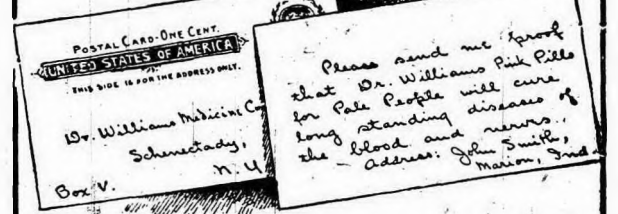 POSTAL CARD-ONE CENT.
UNITED STATES OF AMERICA
THIS SIDE IS FOR THE ADDRESS ONLY.
Dr. Williams Medicine Co
Schenectady,
Box V. N. Y
Please send me proof
that Dr. Williams Pink Pills
for Pale People will cure
long standing diseases of
the blood and nerves.
Address: John Smith,
Marion, Ind.